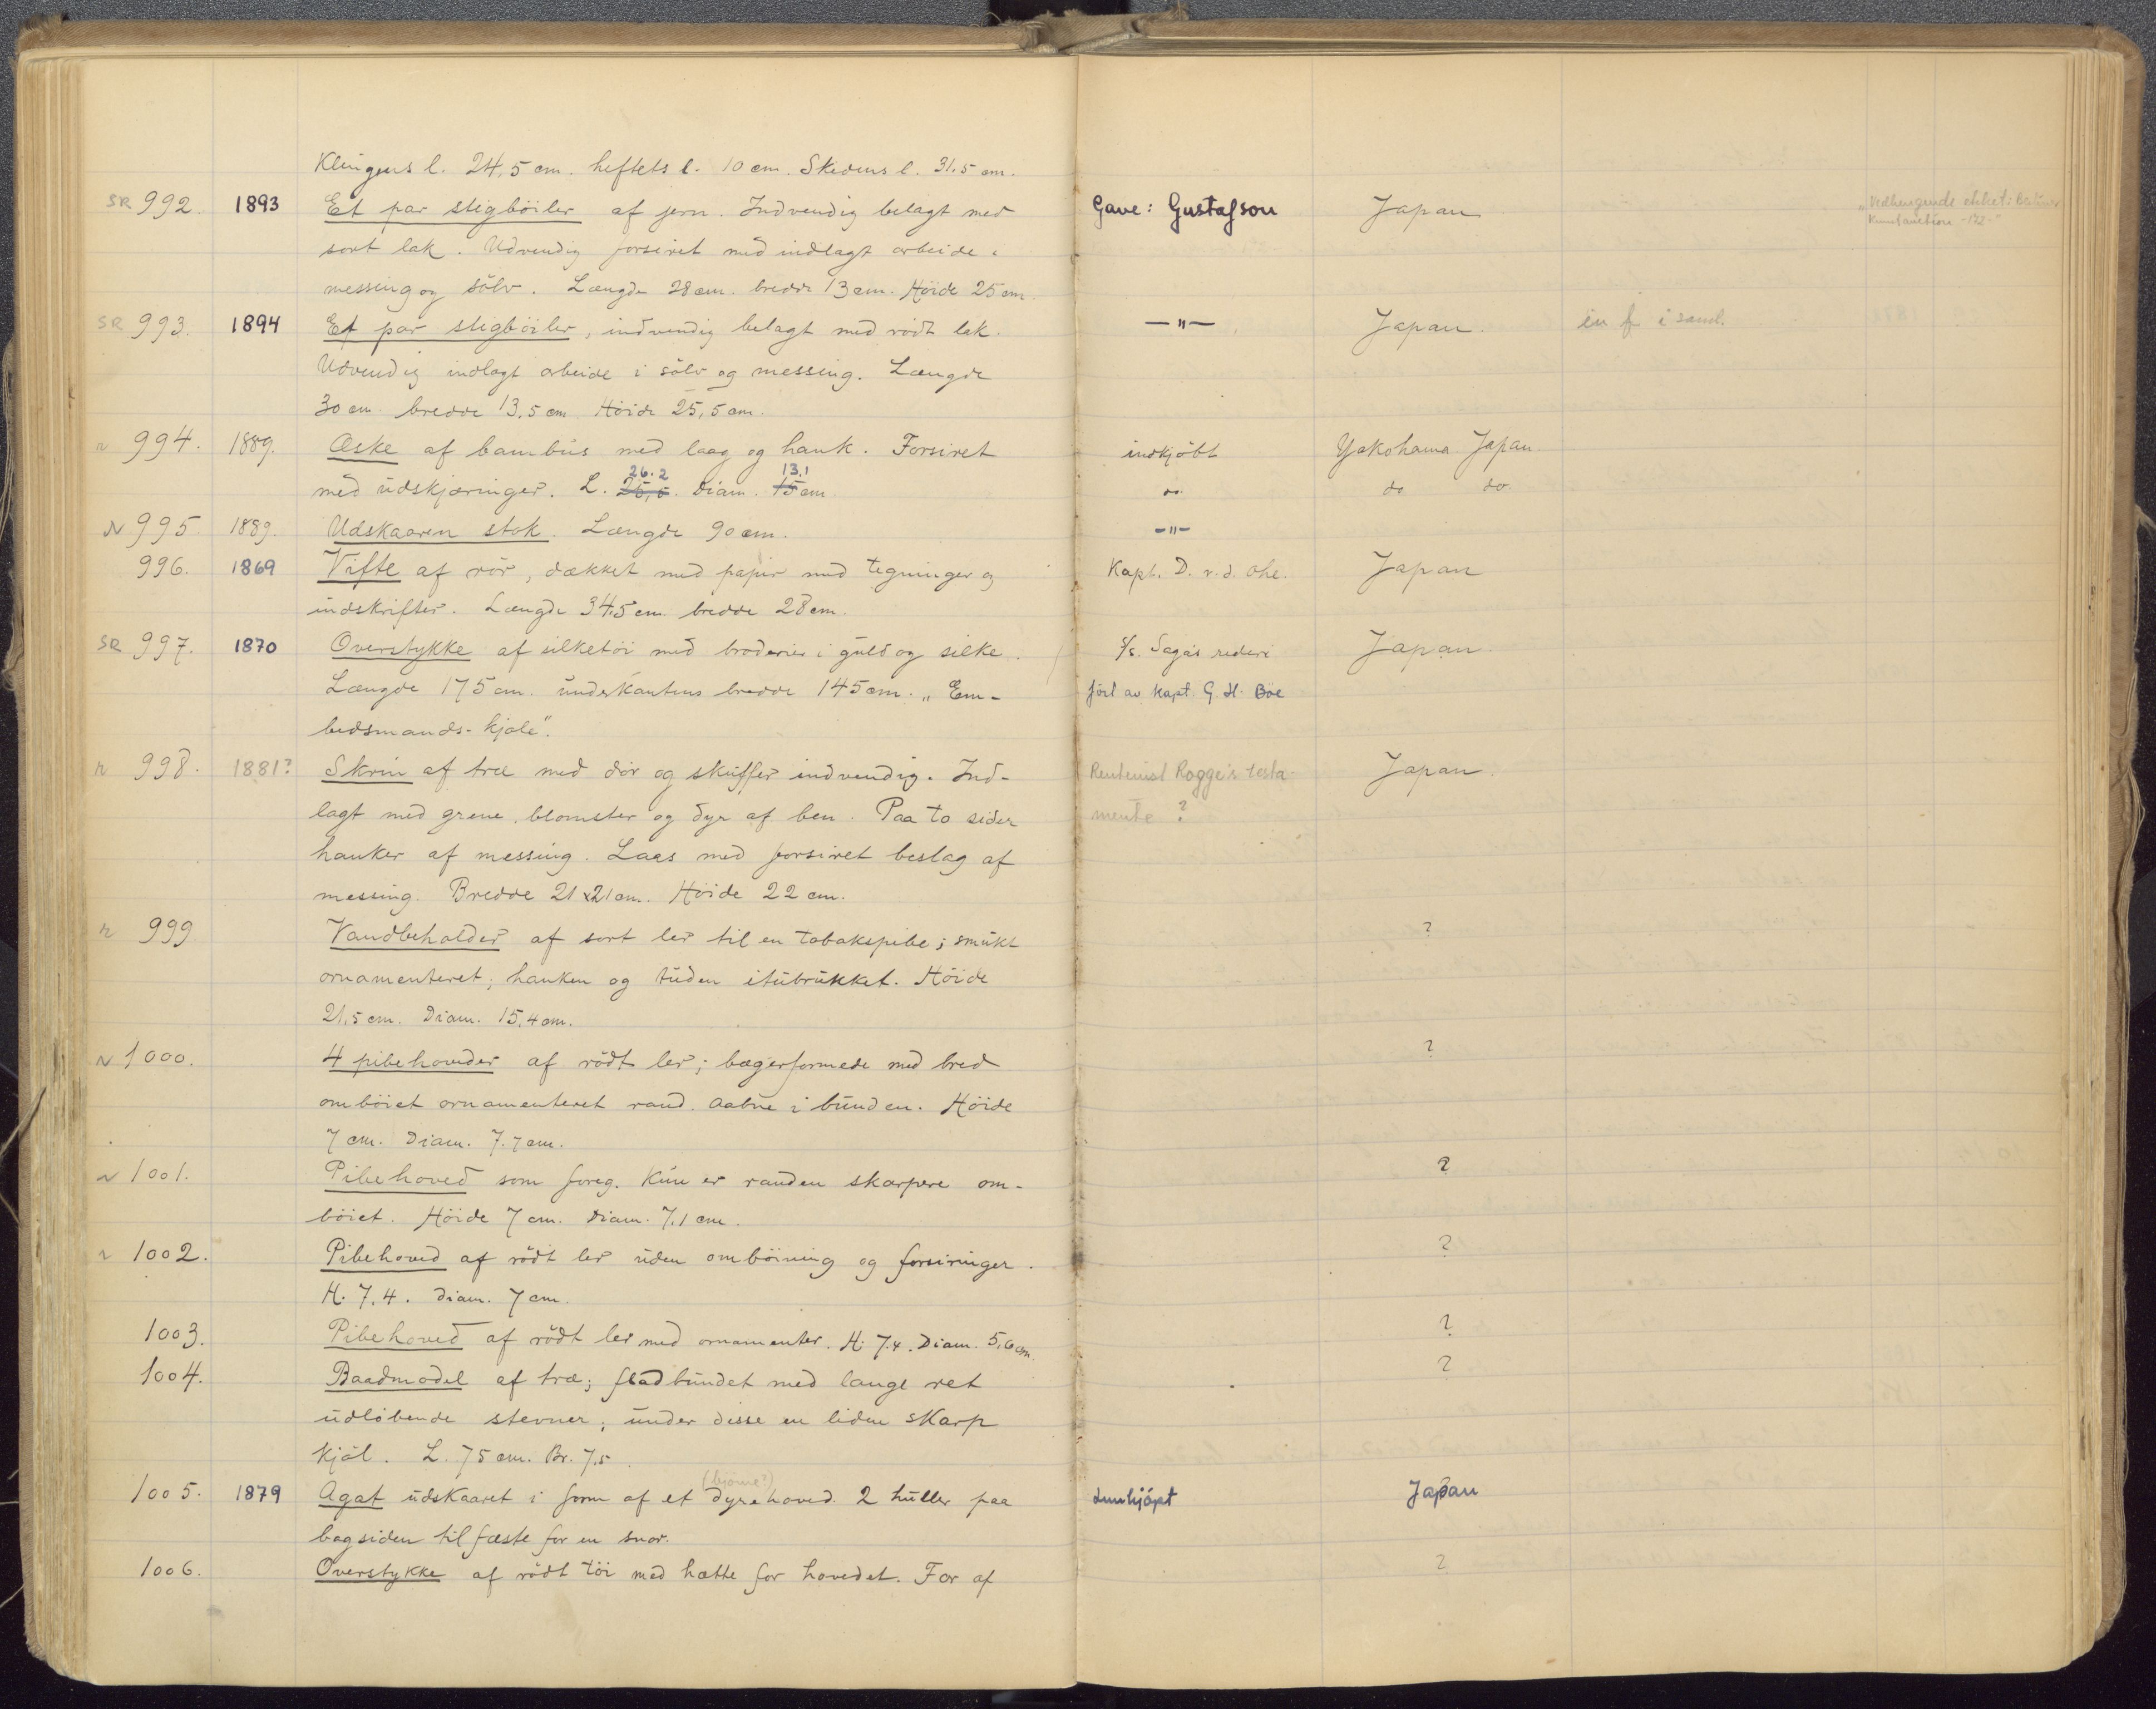 Klingens l. 24,5 cm. heftets l. 10 cm. Skedens l. 31.5 cm.
SR 992. 1893 Et par stigböiler af jern. Indvendig belagt med Gave: Gustafson Japan "Vedhengende etiket: Berliner
sort lak. Udvendig forsiret med indlagt arbeide i Kunstauction -172-"
messing og sölv. Længde 28 cm. bredde 13 cm. Höide 25 cm.
SR 993. 1894 Et par stigböiler, indvendig belagt med rödt lak. —"— Japan. in f i saml.
Udvendig indlagt arbeide i sölv og messing. Længde
30 cm. bredde 13.5 cm. Höide 25,5 cm.
n 994. 1889. Æske af bambus med laag og hank. Forsiret indkjöbt Yokohama Japan.
med udskjæringer. L. 26.2 25,5. Diam. 13,1 15 cm. do. do do.
N 995. 1889. Udskaaren stok. Længde 90 cm. -"-
996. 1869 Vifte af rör, dækket med papir med tegninger og Kapt. D. v. d. Ohe. Japan
indskrifter. Længde 34,5 cm. bredde 28 cm.
SR 997. 1870 Overstykke af silketöi med broderier i guld og silke. S/s. Sagas rederi Japan.
Længde 175 cm. underkantens bredde 145 cm. "Em- fört av kapt. G. H. Böe
bedsmands-kjole".
n 998. 1881? Skrin af træ med dör og skuffer indvendig. Ind- Rentenist Rogge's testa- Japan.
lagt med grene, blomster og dyr af ben. Paa to sider mente ?
hanker af messing. Laas med forsiret beslag af
messing. Bredde 21 x 21 cm. Höide 22 cm.
n 999 Vandbeholder af sort ler til en tobakspibe; smukt ?
ornamenteret; hanken og tuden itubrukket. Höide
21,5 cm. Diam. 15,4 cm.
N 1000. 4 pibehoveder af rödt ler; bægerformede med bred ?
omböiet ornamenteret rand. Aabne i bunden. Höide
7 cm. Diam. 7.7 cm.
n 1001. Pibehoved som foreg. Kun er randen skarpere om- ?
böiet. Höide 7 cm. Diam. 7,1 cm.
n 1002. Pibehoved af rödt ler uden omböining og forsiringer. ?
H. 7.4. Diam. 7 cm.
1003. Pibehoved af rödt ler med ornamenter. H. 7.4. Diam. 5,6 cm. ?
1004. Baadmodel af træ; fladbundet med lange ret ?
udlöbende stevner; under disse en liden skarp
kjöl. L. 75 cm. Br. 7.5.
1005. 1879 Agat udskaaret i form af et (björne?) dyrehoved. 2 huller paa Innkjöpt Japan
bagsiden til fæste for en snor.
1006. Overstykke af rödt töi med hætte for hovedet. For af ?